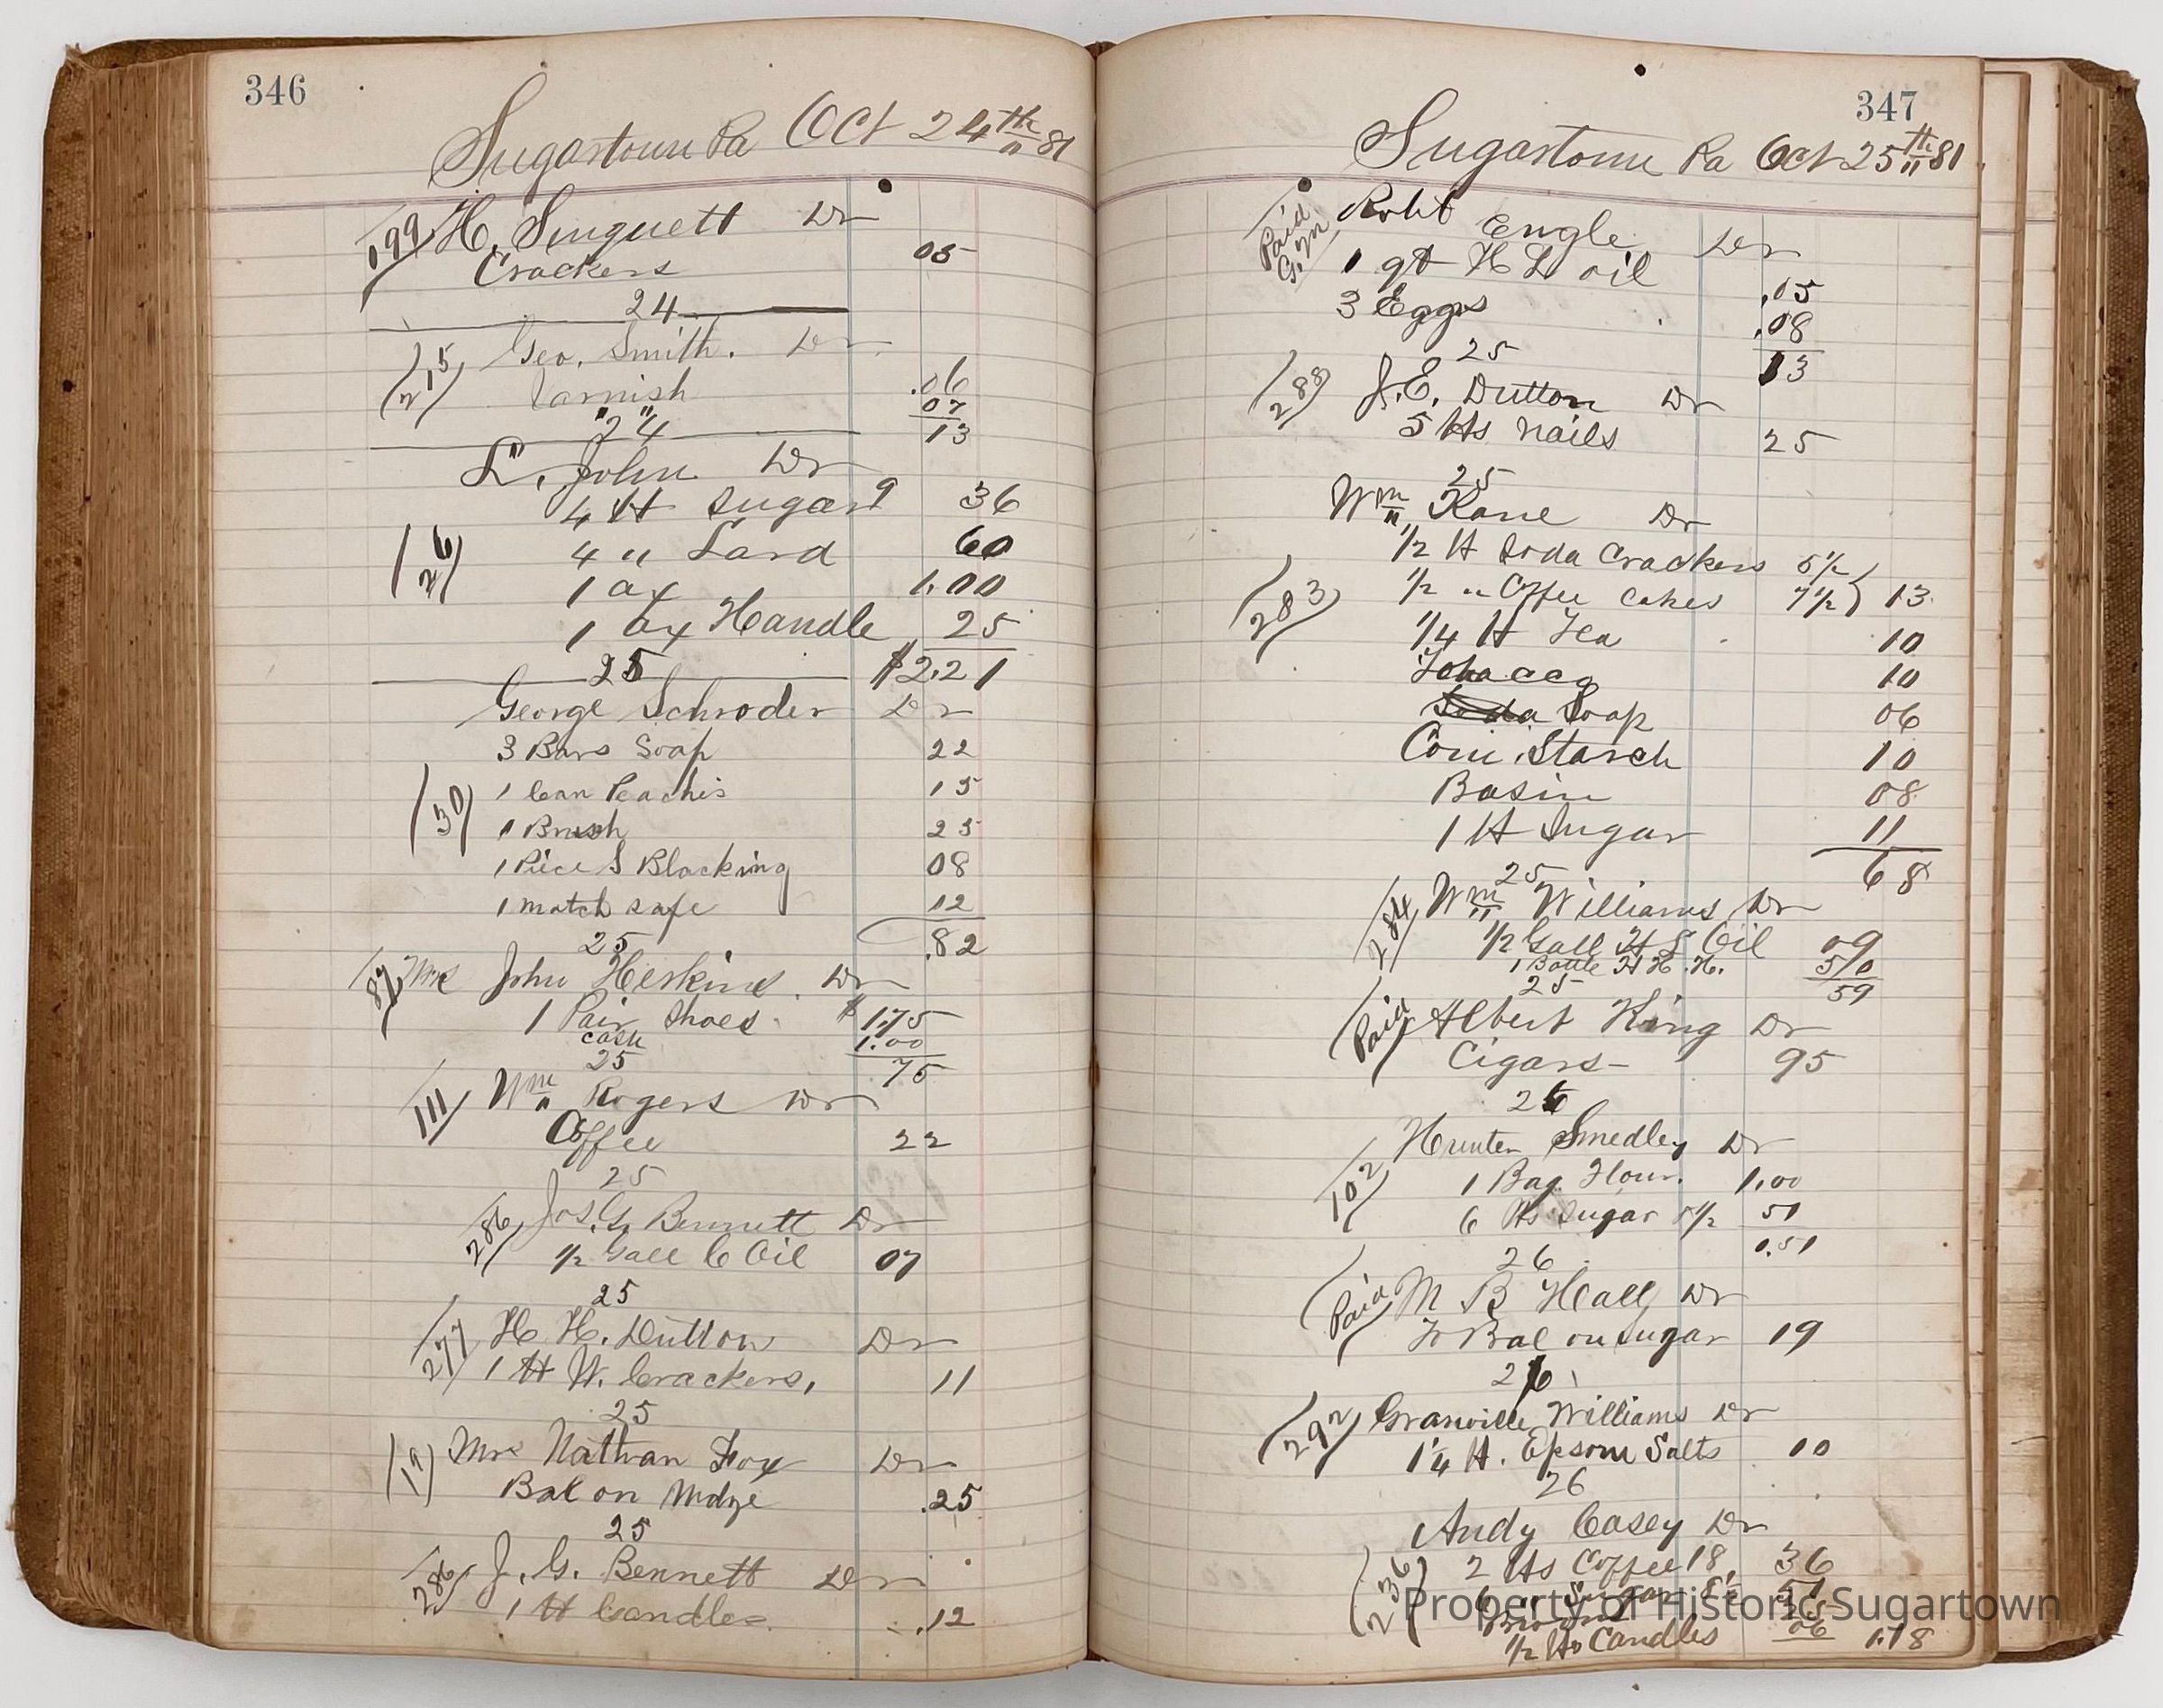 346
Sugartown Pa Oct 24th 81
199 H. Dr
Crackers 05
24
215 Geo. Smith. Dr
Varnish .06
07
"24" 13
L. John Dr
4 lb Sugar 9 36
26 4 " Lard 60
1 ax 1.00
1 ax Handle 25
25 $2.21
George Schroder Dr
3 Bars Soap 22
30 1 Can Peaches 15
1 Brush 25
1 Piece S Blacking 08
1 match safe 12
25 .82
87 Mrs John Heskins Dr
1 Pair Shoes $1.75
cash 1.00
25 75
111 Wm Rogers Dr
Coffee 22
25
286 Jos. G. Bennett Dr
1/2 Gall C Oil 07
25
277 H H. Dutton Dr
1 lb W. Crackers, 11
25
Mrs Nathan Fox Dr
Bal on Mdze .25
25
286 J. G. Bennett Dr
1 lb Candles .12
347
Sugartown Pa Oct 25th 81
Paid G.M Robt Engle Dr
1 qt H L oil .05
3 Eggs .08
25 13
288 J. E. Dutton Dr
5 lbs nails 25
25
Wm Kane Dr
1/2 lb Soda Crackers 5 1/2
283 1/2 " Coffee Cakes 7 1/2 13
1/4 lb Tea 10
Tobacco 10
Soda Soap 06
Corn Starch 10
Basin 08
1 lb Sugar 11
25 68
284 Wm Williams Dr
1/2 Gall H L Oil 09
1 Bottle H H. H. 50
25 59
Paid Albert King Dr
Cigars 95
26
102 Hunter Smedley Dr
1 Bag Flour 1.00
6 lbs Sugar 8 1/2 51
26 1.51
Paid M B Hall Dr
To Bal on sugar 19
26
292 Granville Williams Dr
1/4 lb. Epsom Salts 10
26
Andy Casey Dr
236 2 lbs Coffee 18 36
6 " Sugar 8 1/2 51
1/2 lb Candles 06 1.18
Property of Historic Sugartown